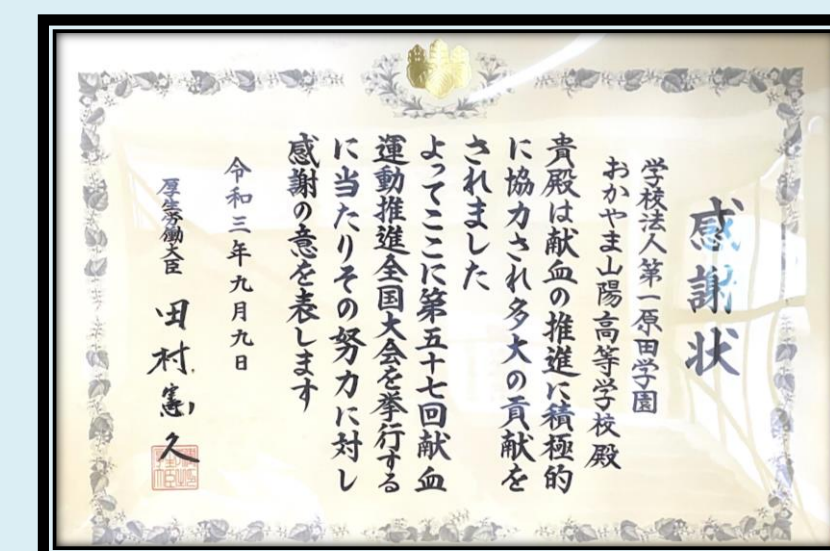 感謝状
学校法人第一原田学園
おかやま山陽高等学校殿
貴殿は献血の推進に積極的
に協力され多大の貢献を
されました
よってここに第五十七回献血
運動推進全国大会を挙行する
に当たりその努力に対し
感謝の意を表します
令和三年九月九日
厚生労働大臣 田村憲久